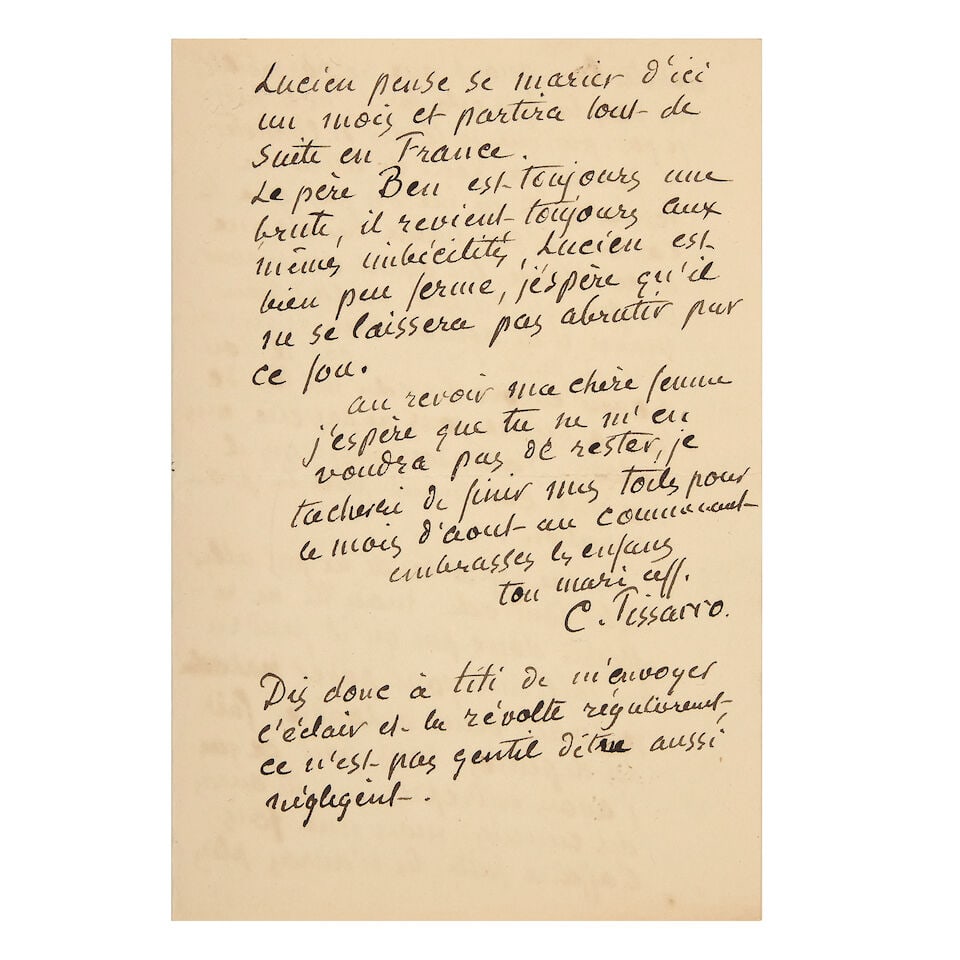 Lucien pense se marier d'ici
un mois et partira tout de
suite en France.
Le père Ben est toujours une
brute, il revient toujours aux
mêmes imbécilités, Lucien est
bien peu ferme, j'espère qu'il
ne se laissera pas abrutir par
ce fou.
au revoir ma chère femme
j'espère que tu ne m'en
voudra pas de rester, je
tacherai de finir mes toiles pour
le mois d'aout au commencant
embrasses les enfans
ton mari aff.
C. Pissarro.
Dis donc à titi de m'envoyer
l'éclair et la révolte régulierement
ce n'est pas gentil d'être aussi
négligent.